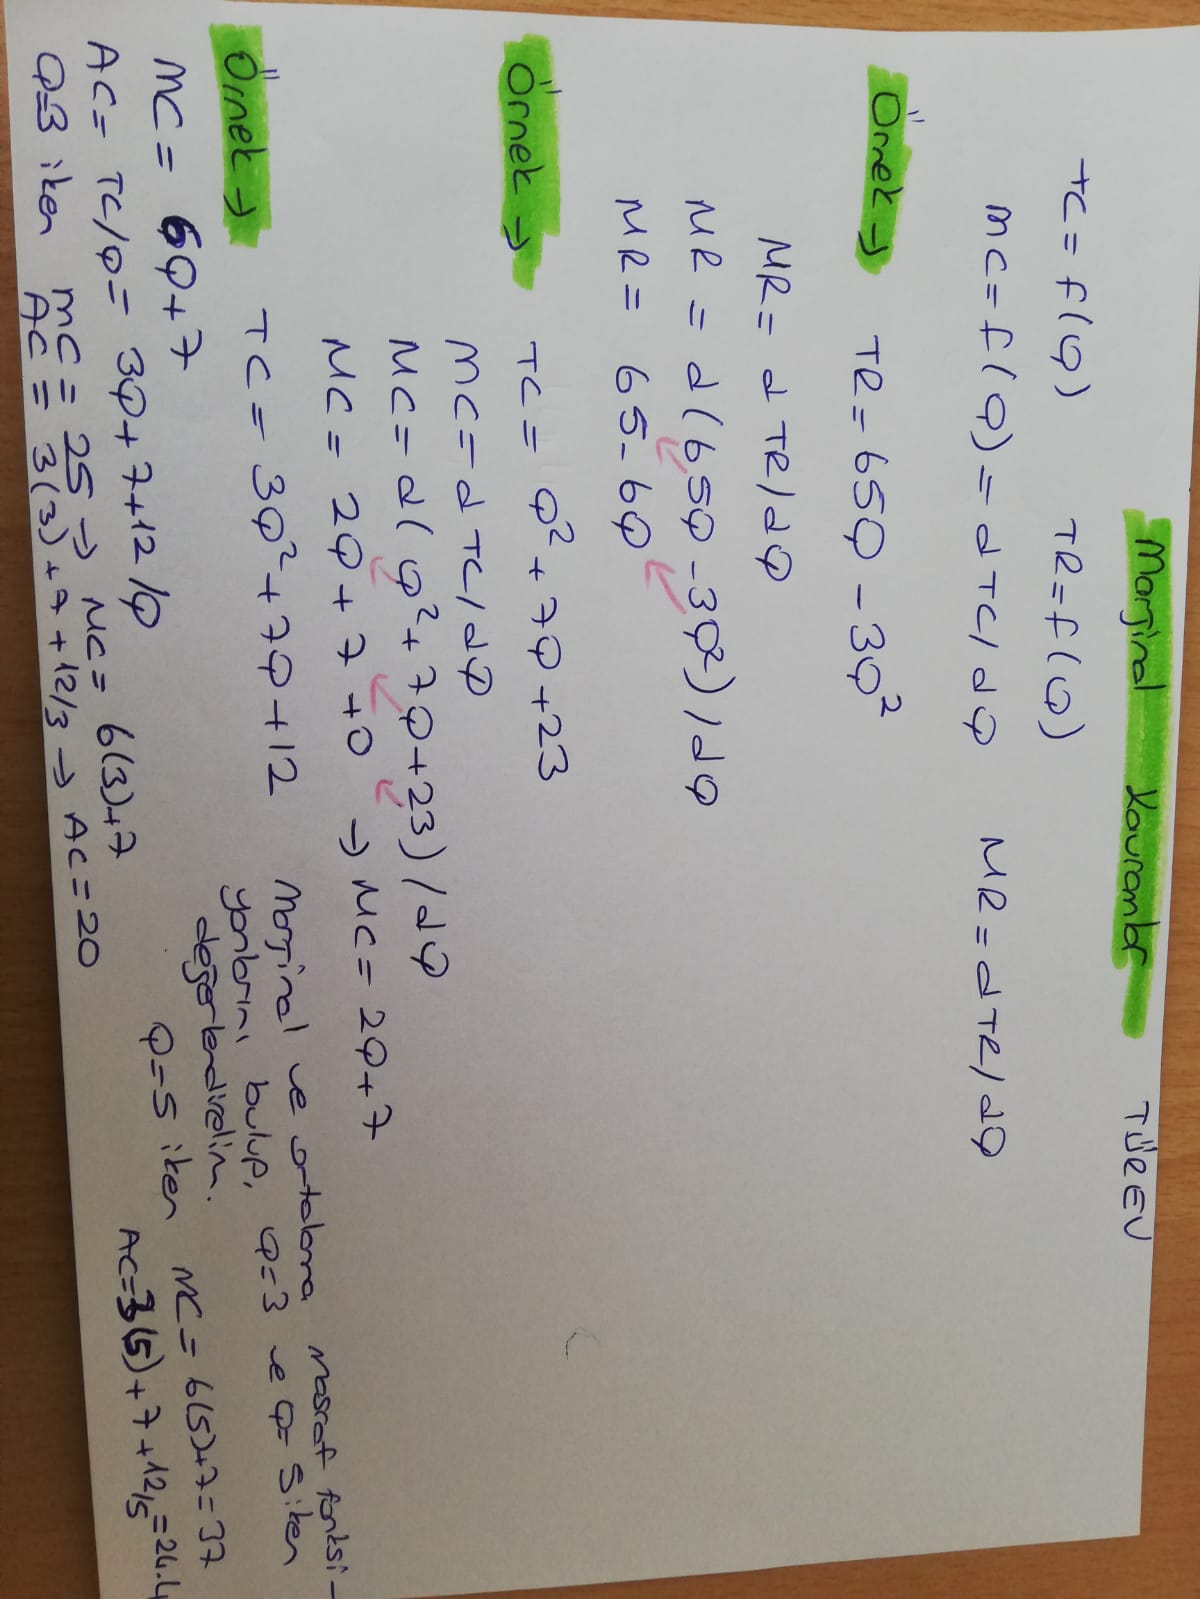 Marjinal Kavramlar TÜREV
TC = f(Q) TR = f(Q)
MC = f(Q) = dTC/dQ MR = dTR/dQ
Örnek → TR = 65Q - 3Q²
MR = dTR/dQ
MR = d(65Q - 3Q²)/dQ
MR = 65 - 6Q
Örnek → TC = Q² + 7Q + 23
MC = dTC/dQ
MC = d(Q² + 7Q + 23)/dQ
MC = 2Q + 7 + 0 → MC = 2Q + 7
Örnek → TC = 3Q² + 7Q + 12 Marjinal ve ortalama masraf fonksi-
yonlarını bulup, Q=3 ve Q=5 iken
değerlendirelim.
MC = 6Q + 7
AC = TC/Q = 3Q + 7 + 12/Q
Q=3 iken MC = 25 → MC = 6(3)+7
AC = 3(3) + 7 + 12/3 → AC = 20
Q=5 iken MC = 6(5)+7 = 37
AC = 3(5) + 7 + 12/5 = 24.4